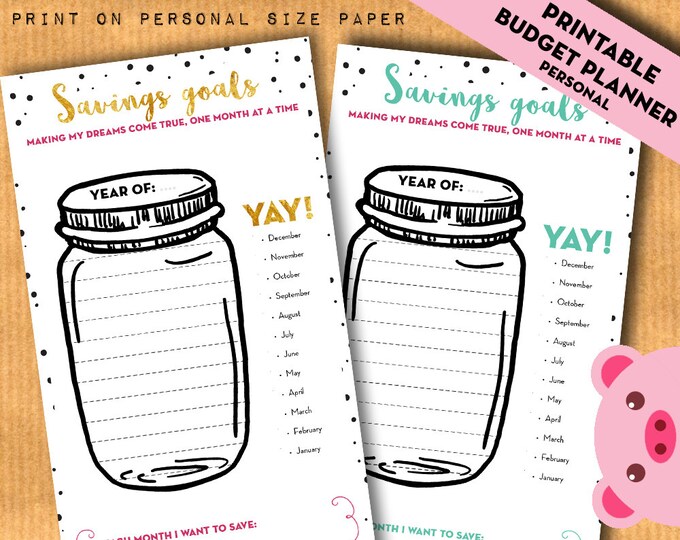 PRINT ON PERSONAL SIZE PAPER
PRINTABLE
BUDGET PLANNER
PERSONAL
Savings goals
MAKING MY DREAMS COME TRUE, ONE MONTH AT A TIME
YEAR OF: ....
YAY!
• December
• November
• October
• September
• August
• July
• June
• May
• April
• March
• February
• January
MONTH I WANT TO SAVE:
Savings goals
MAKING MY DREAMS COME TRUE, ONE MONTH AT A TIME
YEAR OF: ....
YAY!
• December
• November
• October
• September
• August
• July
• June
• May
• April
• March
• February
• January
MONTH I WANT TO SAVE: